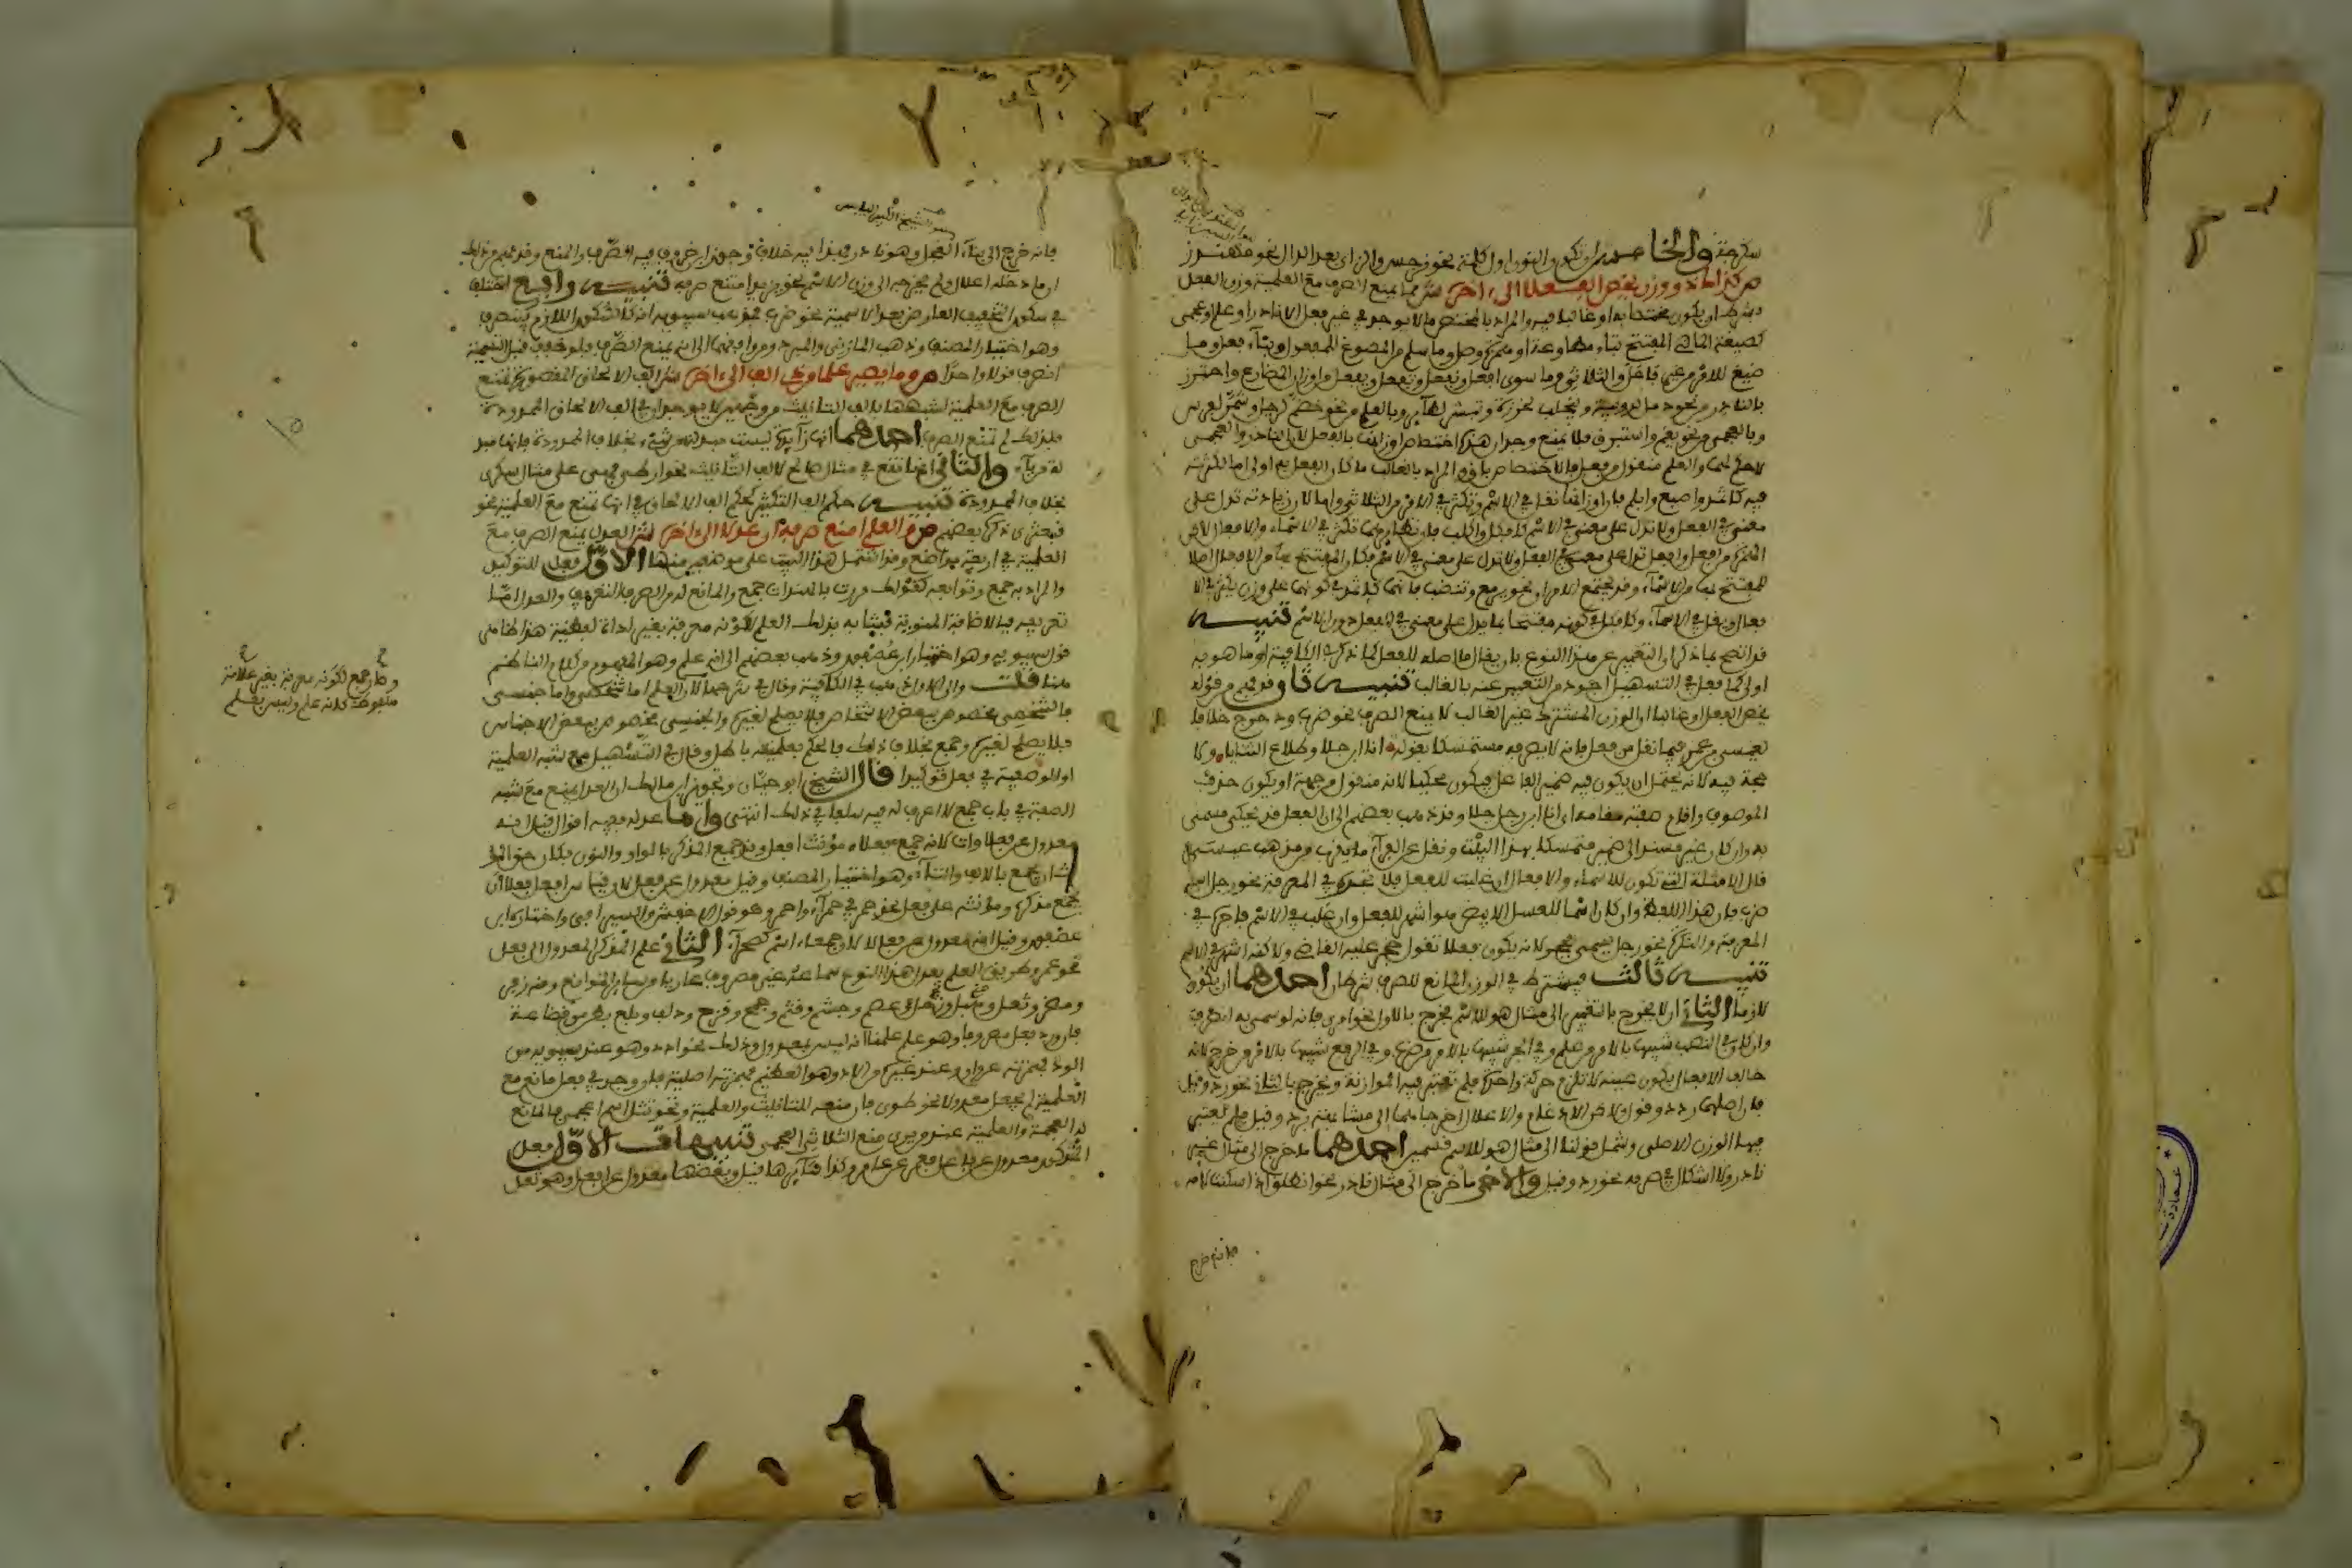 سكرجة والخامس ان تكون النون اول كلمة نحو نرجس والزاى بعد الدال نحو مهندز
ص كذاك ذو وزن يخص الفعلا الى ءاخره ش مما يمنع الصرف مع العلمية وزن الفعل
بشرط ان يكون مختصا به او غالبا فيه والمراد بالمختص ما لا يوجد في غير فعل الا نادرا او علم او عجمي
كصيغة الماضي المفتتح بتاء مطاوعة او همزة وصل وما سلم من المصوغ للمفعول وبناء فعل وما
صيغ للامر من غير فاعل والثلاثي وما سوى افعل ونفعل وتفعل ويفعل من اوزان المضارع واحترز
بالنادر من نحو دئل لدويبة وينجلب لخرزة وتبشر لطائر وبالعلم من نحو خضم لرجل وشمر لفرس
وبالعجمي من نحو بقم واستبرق فلا يمنع وجدان هذه اختصاص اوزانها بالفعل لان النادر والعجمي
لا حكم لهما والعلم منقول من فعل فالاختصاص باق والمراد بالغالب ما كان الفعل به اولى اما لكثرته
فيه كاثمد واصبع وابلم فان اوزانها تقل في الاسم وتكثر في الامر من الثلاثي واما لان زيادته تدل على
معنى في الفعل ولا تدل على معنى في الاسم كافكل واكلب فان نظائرهما تكثر في الاسماء والافعال لكن
الهمزة من افعل وافعل تدل على معنى في الفعل ولا تدل على معنى في الاسم فكان المفتتح بها من الافعال اصلا
للمفتتح بها من الاسماء وقد يجتمع الامران نحو يرمع وتنضب فانهما كاثمد في كونهما على وزن يكثر في الا
فعال ويقل في الاسماء وكافكل في كونه مفتتحا بما يدل على معنى في الفعل دون الاسم تنبيه
قد اتضح بما ذكر ان التعبير عن هذا النوع بان يقال ما اصله للفعل كما ذكر في الكافية او ما هو به
اولى كما فعل في التسهيل اجود من التعبير عنه بالغالب تنبيه ثان وقد فهم من قوله
يخص الفعل او غالبا ان الوزن المشترك غير الغالب لا يمنع الصرف نحو ضرب ودحرج خلافا
لعيسى بن عمر فيما نقل من فعل فانه لا يصرفه مستمسكا بقوله انا ابن جلا وطلاع الثنايا ولا
حجة فيه لانه يحتمل ان يكون فيه ضمير الفاعل فيكون محكيا لانه منقول من جملة او يكون حذف
الموصوف واقام صفته مقامه اي انا ابن رجل جلا وقد ذهب بعضهم الى ان الفعل قد يحكى مسمى
به وان كان غير مسند الى ضمير متمسكا بهذا البيت ونقل عن الفراء ما يقرب من مذهب عيسى
قال الامثلة التي تكون للاسماء والافعال ان غلبت للفعل فلا تجره في المعرفة نحو رجل اسمه
ضرب فان هذا اللفظ وان كان اسما للعسل الابيض هو اشهر للفعل وان غلب في الاسم فاجره في
المعرفة والنكرة نحو رجل يسمى بحجر لانه يكون فعلا تقول حجر عليه القاضي ولكنه اشهر في الاسم
تنبيه ثالث يشترط في الوزن المانع للصرف شرطان احدهما ان يكون
لازما الثاني ان لا يخرج بالتغيير الى مثال هو للاسم فخرج بالاول نحو امرئ فانه لو سمي به انصرف
وان كان في النصب شبيها بالامر من علم وفي الجر شبيها بالامر من ضرب وفي الرفع شبيها بالامر من خرج لانه
خالف الافعال بكون عينه لا تلزم حركة واحدة فلم تعتبر فيه الموازنة وخرج بالثاني نحو رد وقيل
فان اصلهما ردد وقول ولكن الادغام والاعلال اخرجاهما الى مشابهة برد وقيل فلم يعتبر
فيهما الوزن الاصلي وشمل قولنا الى مثال هو للاسم قسمين احدهما ما خرج الى مثال غير
نادر ولا اشكال في صرفه نحو رد وقيل والاخر ما خرج الى مثال نادر نحو انطلق اذا اسكنت لامه
فانه خرج
فانه خرج الى بناء انقحل وهو نادر فهذا فيه خلاف وجوز ابن خروف فيه الصرف والمنع وقد فهم من ذلك
ان ما دخله اعلال ولم يخرجه الى وزن الاسم نحو يزيد امتنع صرفه تنبيه رابع اختلف
في سكون التخفيف العارض بعد التسمية نحو ضرب فمذهب سيبويه انه كالسكون اللازم فينصرف
وهو اختيار المصنف وذهب المازني والمبرد ومن وافقهما الى انه يمنع الصرف فلو خفف قبل التسمية
انصرف قولا واحدا ص وما يصير علما من ذي الف الى ءاخره ش الف الالحاق المقصورة تمنع
الصرف مع العلمية لشبهها بالف التانيث من وجهين لا يوجدان في الف الالحاق الممدودة
فلذلك لم تمنع الصرف احدهما انها زائدة ليست مبدلة من شيء بخلاف الممدودة فانها مبد
لة من ياء والثاني انها تقع في مثال صالح لالف التانيث نحو ارطى فهى على مثال سكرى
بخلاف الممدودة تنبيه حكم الف التكثير كحكم الف الالحاق في انها تمنع مع العلمية نحو
قبعثرى ذكره بعضهم ص والعلم امنع صرفه ان عدلا الى ءاخره ش العدل يمنع الصرف مع
العلمية في اربعة مواضع وقد اشتمل هذا البيت على موضعين منها الاول فعل للتوكيد
والمراد به جمع وتوابعه كقولك مررت بالهندات جمع والمانع له من الصرف التعريف والعدل اما
تعريفه فبالاضافة المنوية فشابه بذلك العلم لكونه معرفة بغير اداة لفظية هذا ظاهر
قول سيبويه وهو اختيار ابن عصفور وذهب بعضهم الى انه علم وهو المفهوم من كلام الناظم
هنا قلت والى الاول ذهب في الكافية وقال في شرحها لان العلم اما شخصي واما جنسي
فالشخصي مخصوص ببعض الاشخاص فلا يصلح لغيره والجنسي مخصوص ببعض الاجناس
فلا يصلح لغيره وجمع بخلاف ذلك فالحكم بعلميته باطل وقال في التسهيل مع شبه العلمية
او الوصفية في فعل توكيدا قال الشيخ ابو حيان وتجويز ابن مالك ان العدل يمنع مع شبه
الصفة في باب جمع لا اعرف له فيه سلفا في ذلك انتهى واما عدله ففيه اقوال قيل انه
معدول عن فعلاوات لانه جمع فعلاء مؤنث افعل وقد جمع المذكر بالواو والنون فكان حق المؤ
نث ان يجمع بالالف والتاء وهو اختيار المصنف وقيل معدول عن فعل لان قياس افعل فعلاء ان
يجمع مذكره ومؤنثه على فعل نحو حمر في حمراء واحمر وهو قول الاخفش والسيرافي واختاره ابن
عصفور وقيل انه معدول عن فعالى لان جمعاء اسم كصحراء الثاني علم المذكر المعدول الى فعل
نحو عمر وطريق العلم بعدل هذا النوع سماعه غير مصروف عاريا من سائر الموانع ومنه زفر
ومضر وثعل وهبل وزحل وعصم وجشم وقثم وجمح وقزح ودلف وبلع بطن من قضاعة
فان ورد فعل مصروفا وهو علم علمنا انه ليس بمعدول وذلك نحو ادد وهو عند سيبويه من
الود فهمزته عن واو وعند غيره من الاد وهو العظيم فهمزته اصلية فلو وجد في فعل مانع مع
العلمية لم يجعل معدولا نحو طوى فان منعه للتانيث والعلمية ونحو تتل اسم اعجمي فالمانع
له العجمة والعلمية عند من يرى منع الثلاثي العجمي تنبيهات الاول فعل
المذكور معدول عن فاعل فعمر عن عامر وكذا سائرها قيل وبعضها معدول عن افعل وهو ثعل
وقال جمع لكونه معرفة بغير علامة
ملفوظة كانه علم وليس بعلم